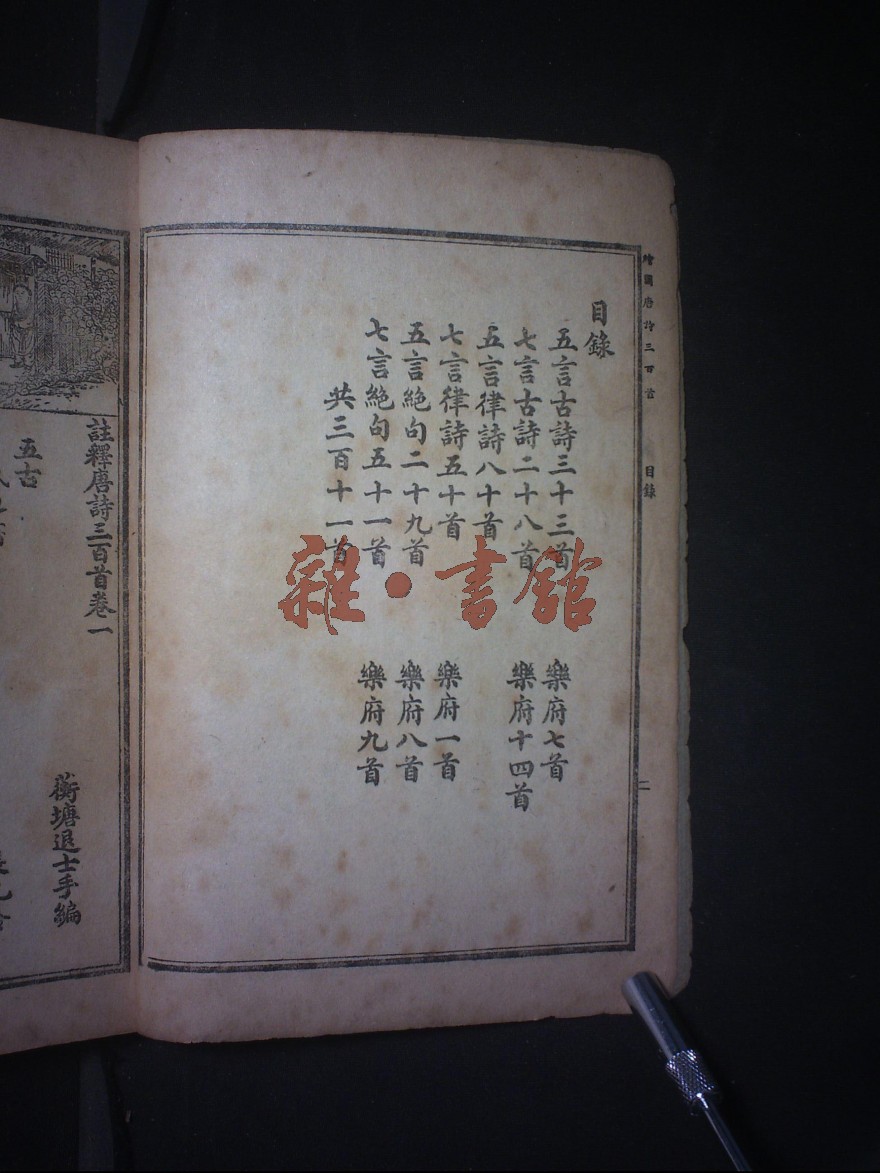 繪圖唐詩三百首
目錄
二
目錄
五言古詩三十三首 樂府七首
七言古詩二十八首 樂府十四首
五言律詩八十首
七言律詩五十首 樂府一首
五言絕句二十九首 樂府八首
七言絕句五十一首 樂府九首
共三百十一首
雜·書館
註釋唐詩三百首卷一
蘅塘退士手編
五古